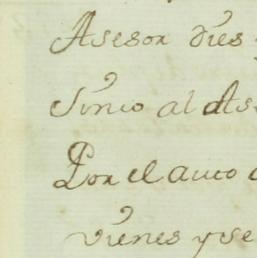 Asesor dies
Junio al As
Por el auto
vienes y se